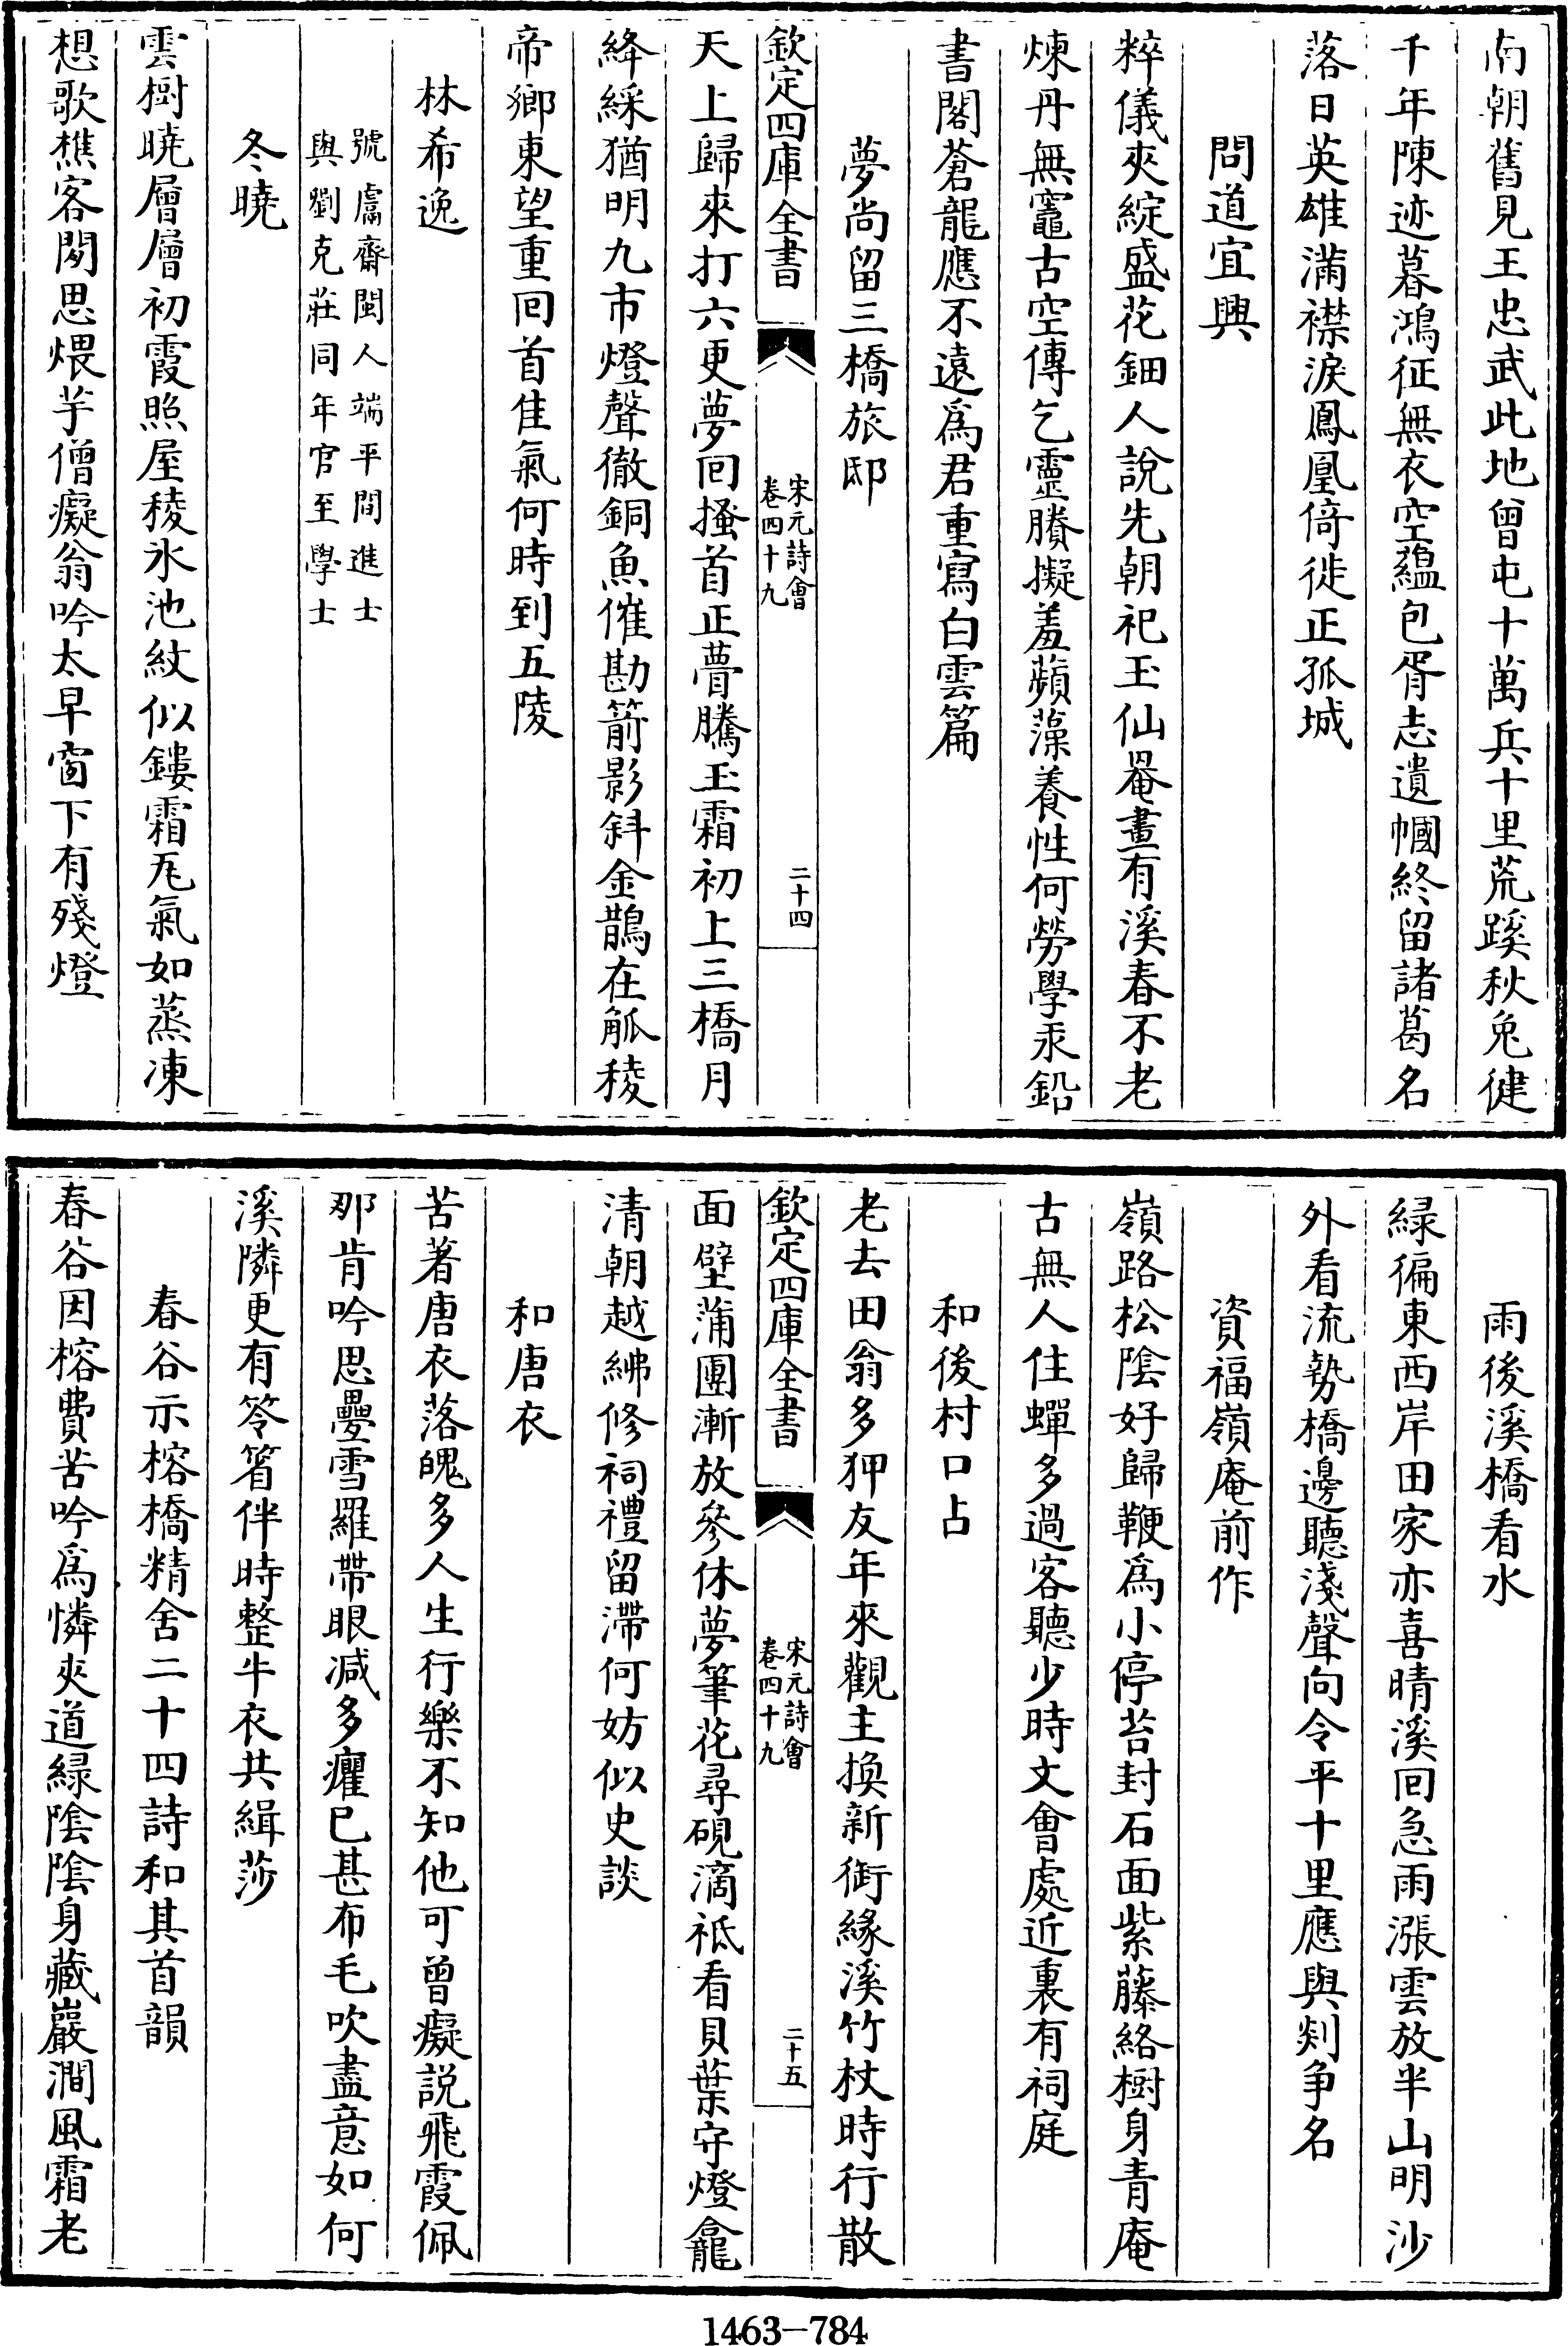 南朝舊見王忠武此地曾屯十萬兵十里荒蹊秋兔健
千年陳迹暮鴻征無衣空緼包胥志遺幗終留諸葛名
落日英雄滿襟淚鳳凰倚徙正孤城
問道宜興
粹儀夾綻盛花鈿人說先朝祀玉仙罨畫有溪春不老
煉丹無竈古空傳乞靈賸擬羞蘋藻養性何勞學汞鉛
書閣蒼龍應不遠爲君重寫白雲篇
夢尚留三橋旅邸
欽定四庫全書
宋元詩會
卷四十九
二十四
天上歸來打六更夢回搔首正瞢騰玉霜初上三橋月
絳綵猶明九市燈聲徹銅魚催勘箭影斜金鵲在觚稜
帝鄉東望重回首佳氣何時到五陵
林希逸
號鬳齋閩人端平間進士
與劉克莊同年官至學士
冬曉
雲樹曉層層初霞照屋稜氷池紋似鏤霜瓦氣如蒸凍
想歌樵客閑思煨芋僧癡翁吟太早窗下有殘燈
雨後溪橋看水
緑徧東西岸田家亦喜晴溪回急雨漲雲放半山明沙
外看流勢橋邊聽淺聲向令平十里應與剡争名
資福嶺庵前作
嶺路松陰好歸鞭爲小停苔封石面紫藤絡樹身青庵
古無人住蟬多過客聽少時文會處近裏有祠庭
和後村口占
老去田翁多狎友年來觀主換新銜緣溪竹杖時行散
欽定四庫全書
宋元詩會
卷四十九
二十五
面壁蒲團漸放參休夢筆花尋硯滴祗看貝葉守燈龕
清朝越紼修祠禮留滯何妨似史談
和唐衣
苦著唐衣落魄多人生行樂不知他可曾癡説飛霞佩
那肯吟思疊雪羅帶眼减多癯已甚布毛吹盡意如何
溪隣更有笭箵伴時整牛衣共緝莎
春谷示榕橋精舍二十四詩和其首韻
春谷因榕費苦吟爲憐夾道緑陰陰身藏巖澗風霜老
1463—784